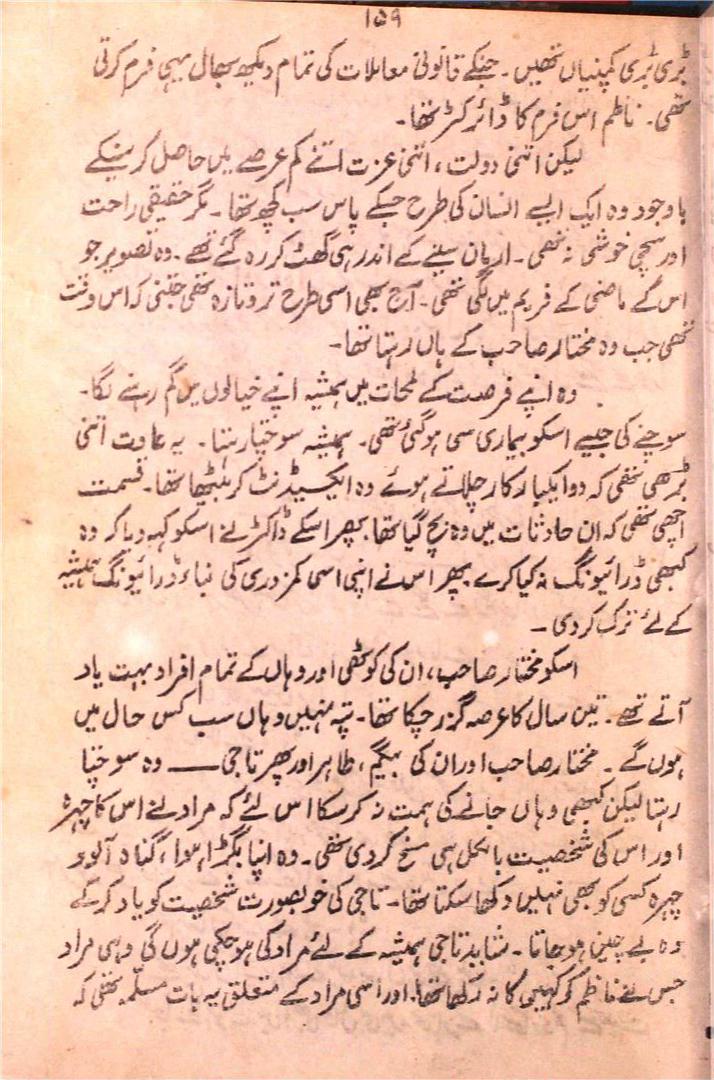 ۱۵۹
بڑی بڑی کمپنیاں تھیں۔ جنکے قانونی معاملات کی تمام دیکھ بھال یہی فرم کرتی
تھی۔ ناظم اس فرم کا ڈائرکٹر تھا۔
لیکن اتنی دولت، اتنی عزت اتنے کم عرصے میں حاصل کر لینے کے
باوجود وہ ایک ایسے انسان کی طرح جسکے پاس سب کچھ تھا۔ مگر حقیقی راحت
اور سچی خوشی نہ تھی۔ ارمان سینے کے اندر ہی گھٹ کر رہ گئے تھے۔ وہ تصویر جو
اس کے ماضی کے فریم میں لگی تھی۔ آج بھی اسی طرح تر و تازہ تھی جتنی کہ اس وقت
تھی جب وہ مختار صاحب کے ہاں رہتا تھا۔
وہ اپنے فرصت کے لمحات میں ہمیشہ اپنے خیالوں میں گم رہنے لگا۔
سوچنے کی جیسے اسکو بیماری سی ہوگئی تھی۔ ہمیشہ سوچتا رہتا۔ یہ عادت اتنی
بڑھی تھی کہ دو ایکبار کار چلاتے ہوئے وہ ایکسیڈنٹ کر بیٹھا تھا۔ قسمت
اچھی تھی کہ ان حادثات میں وہ بچ گیا تھا۔ پھر اسکے ڈاکٹر نے اسکو کہہ دیا کہ وہ
کبھی ڈرائیونگ نہ کیا کرے پھر اس نے اپنی اسی کمزوری کی بناء ڈرائیونگ ہمیشہ
کے لئے ترک کر دی۔
اسکو مختار صاحب، ان کی کوٹھی اور وہاں کے تمام افراد بہت یاد
آتے تھے۔ تین سال کا عرصہ گزر چکا تھا۔ پتہ نہیں وہاں سب کس حال میں
ہوں گے۔ مختار صاحب اور ان کی بیگم، طاہر اور پھر تاجی ــــ وہ سوچتا
رہتا لیکن کبھی وہاں جانے کی ہمت نہ کرسکا اس لئے کہ مراد نے اس کا چہرہ
اور اس کی شخصیت بالکل ہی مسخ کر دی تھی۔ وہ اپنا بگڑا ہوا، گناہ آلود
چہرہ کسی کو بھی نہیں دکھا سکتا تھا۔ تاجی کی خوبصورت شخصیت کو یاد کر کے
وہ بے چین ہو جاتا۔ شاید تاجی ہمیشہ کے لئے مراد کی ہو چکی ہوں گی وہی مراد
جس نے ناظم کو کہیں کا نہ رکھا تھا۔ اور اسی مراد کے متعلق یہ بات مسلّمہ تھی کہ